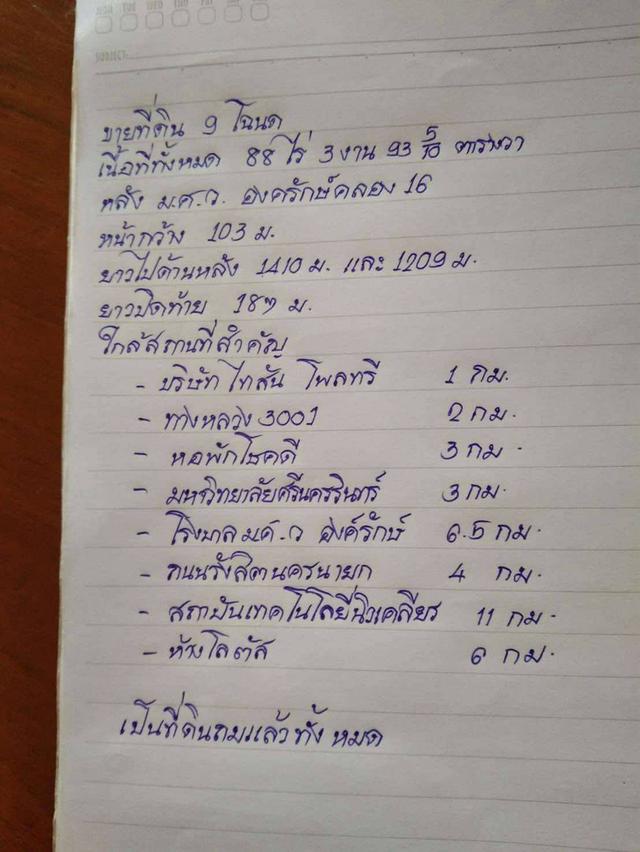 MON TUE WED THU FRI SAT SUN
SUBJECT:
ขายที่ดิน 9 โฉนด
เนื้อที่ทั้งหมด 88 ไร่ 3 งาน 93 5/10 ตารางวา
หลัง ม.ศ.ว. องครักษ์คลอง 16
หน้ากว้าง 103 ม.
ยาวไปด้านหลัง 1410 ม. และ 1209 ม.
ยาวปิดท้าย 187 ม.
ใกล้สถานที่สำคัญ
- บริษัท ไทสัน โพลทรี 1 กม.
- ทางหลวง 3001 2 กม.
- หอพักโชคดี 3 กม.
- มหาวิทยาลัยศรีนครรินทร์ 3 กม.
- โรงบาล มศ.ว องค์รักษ์ 6.5 กม.
- ถนนรังสิตนครนายก 4 กม.
- สถาบันเทคโนโลยีนิวเคลียร 11 กม.
- ห้างโลตัส 6 กม.
เป็นที่ดินถมแล้วทั้งหมด